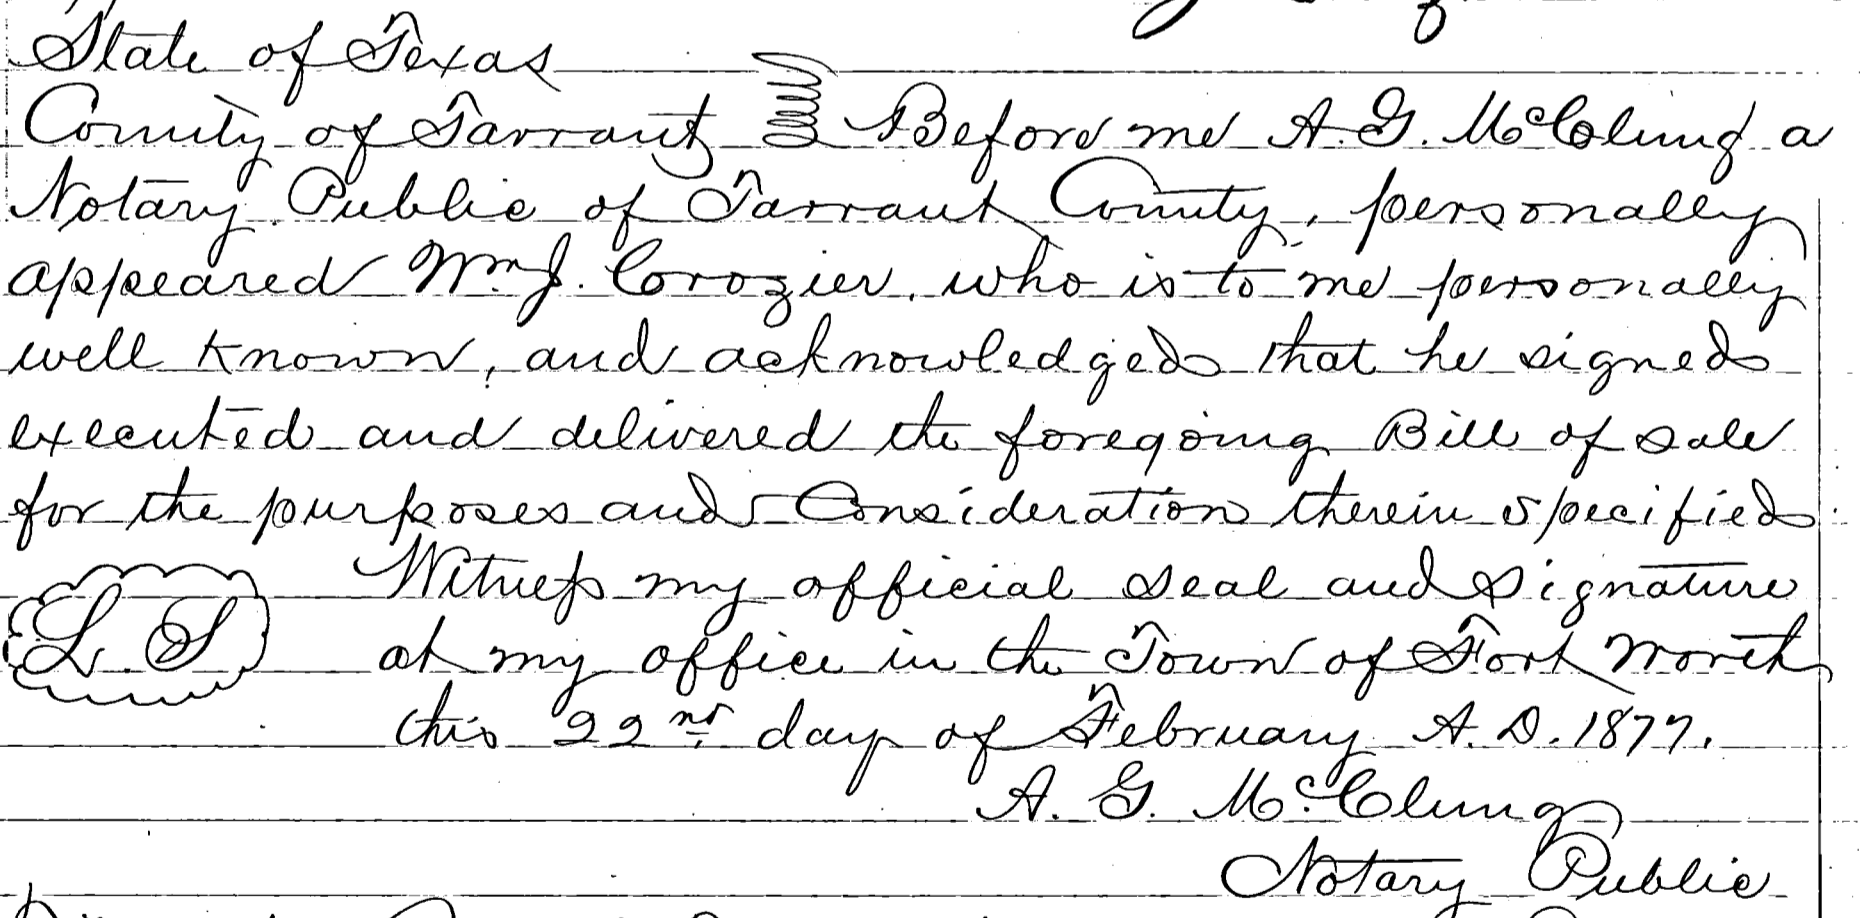 State of Texas
County of Tarrant Before me A. G. McClung a
Notary Public of Tarrant County, personally
appeared Wm. J. Crozier, who is to me personally
well known, and acknowledged that he signed
executed and delivered the foregoing Bill of sale
for the purposes and Consideration therein specified.
Witness my official seal and Signature
L. S at my office in the Town of Fort Worth
this 22nd day of February A. D. 1877.
A. G. McClung
Notary Public